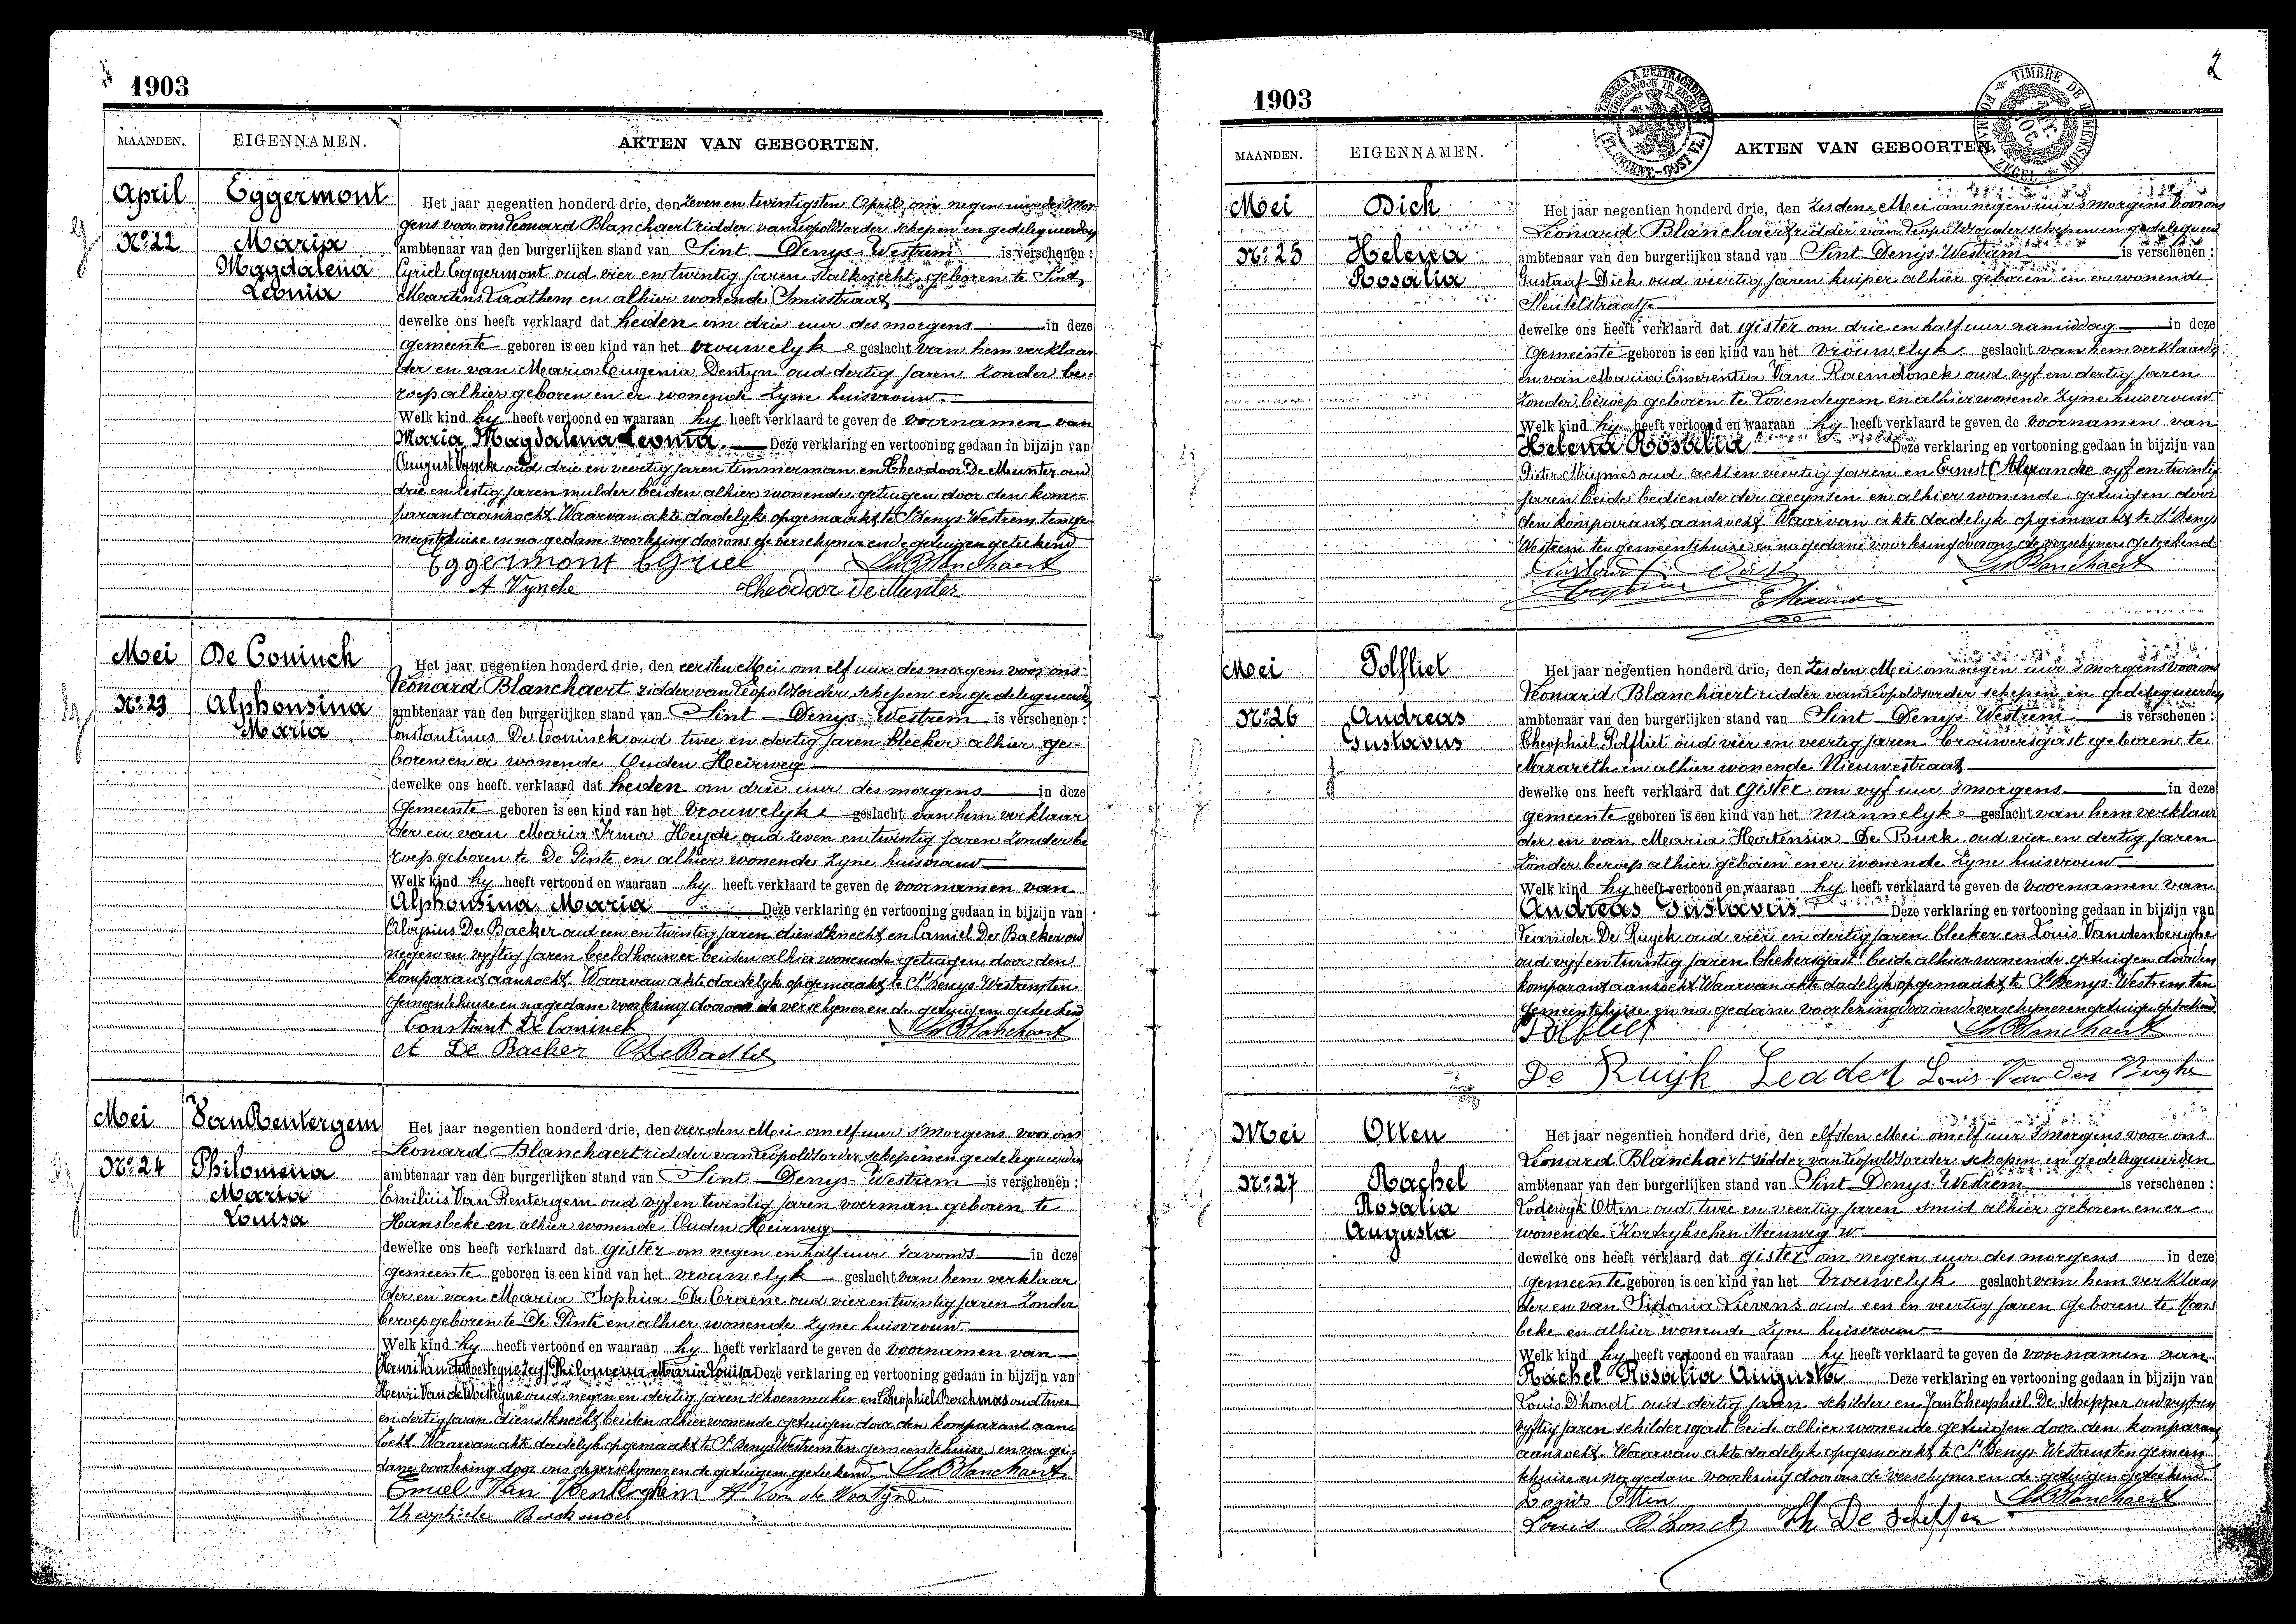 1903
MAANDEN. EIGENNAMEN. AKTEN VAN GEBOORTEN.
April Eggermont
Het jaar negentien honderd drie, den zeven en twintigsten April om negen uur des mor-
gens voor ons Leonard Blanchaert ridder van Leopoldsorder schepen en gedelegueerden
No 22 Maria
ambtenaar van den burgerlijken stand van Sint Denys-Westrem is verschenen :
Magdalena
Cyriel Eggermont oud vier en twintig jaren stalknecht geboren te Sint
Leonia
Maartens Laathem en alhier wonende Smisstraat
dewelke ons heeft verklaard dat heden om drie uur des morgens in deze
gemeente geboren is een kind van het vrouwelyke geslacht van hem verklaar-
der en van Maria Eugenia Dentyn oud dertig jaren zonder be-
roep alhier geboren en er wonende zyne huisvrouw
Welk kind hy heeft vertoond en waaraan hy heeft verklaard te geven de voornamen van
Maria Magdalena Leonia. Deze verklaring en vertooning gedaan in bijzijn van
August Vyncke oud drie en veertig jaren timmerman en Theodoor De Meunter oud
drie en zestig jaren mulder beiden alhier wonende getuigen door den kom-
parant aanzocht. Waarvan akte dadelyk opgemaakt te St Denys Westrem ten ge-
meentehuize en na gedane voorlezing door ons de verschyner en de getuigen geteekend
Eggermont Cyriel Ld Blanchaert
A Vyncke Theodoor De Munter
Mei De Coninck
Het jaar negentien honderd drie, den eersten Mei om elf uur des morgens voor ons
Leonard Blanchaert ridder van Leopoldsorder schepen en gedelegueerden
No 23 Alphonsina
ambtenaar van den burgerlijken stand van Sint Denys-Westrem is verschenen :
Maria
Constantinus De Coninck oud twee en dertig jaren bleeker alhier ge-
boren en er wonende Ouden Heirweg
dewelke ons heeft verklaard dat heden om drie uur des morgens in deze
Gemeente geboren is een kind van het vrouwelyke geslacht van hem verklaar
der en van Maria Irma Heyde oud zeven en twintig jaren zonder be
roep geboren te De Pinte en alhier wonende zyne huisvrouw
Welk kind hy heeft vertoond en waaraan hy heeft verklaard te geven de voornamen van
Alphonsina Maria Deze verklaring en vertooning gedaan in bijzijn van
Aloysius De Backer oud een en twintig jaren dienstknecht en Camiel De Backer oud
negen en vyftig jaren beeldhouwer beiden alhier wonende getuigen door den
komparant aanzocht. Waarvan akte dadelyk opgemaakt te St Denys Westrem ten
Gemeentehuize en na gedane voorlezing door ons de verschyner en de getuigen geteekend
Constant De Coninck Ld Blanchaert
De Backer
Mei Van Rentergem
Het jaar negentien honderd drie, den vierden Mei om elf uur s'morgens voor ons
Leonard Blanchaert ridder van Leopoldsorder schepen en gedelegueerden
No 24 Philomena
ambtenaar van den burgerlijken stand van Sint Denys-Westrem is verschenen :
Maria
Emilius Van Rentergem oud vyf en twintig jaren voerman geboren te
Louisa
Hansbeke en alhier wonende Ouden Heirweg
dewelke ons heeft verklaard dat gister om negen en half uur s'avonds in deze
gemeente geboren is een kind van het vrouwelyk geslacht van hem verklaar
der en van Maria Sophia De Craene oud vier en twintig jaren zonder
beroep geboren te De Pinte en alhier wonende zyne huisvrouw
Welk kind hy heeft vertoond en waaraan hy heeft verklaard te geven de voornamen van
Philomena Maria Louisa Deze verklaring en vertooning gedaan in bijzijn van
Henri Van de Woestyne oud negen en dertig jaren schoenmaker en Theophiel Borchmas oud twee
en dertig jaren dienstknecht beiden alhier wonende getuigen door den komparant aan-
zocht. Waarvan akte dadelyk opgemaakt te St Denys Westrem ten gemeentehuize en na ge-
dane voorlezing door ons de verschyner en de getuigen geteekend Ld Blanchaert
Emiel Van Renterghem
Theophiele
1903
2
TIMBRE DE DIMENSION
MAANDEN. EIGENNAMEN. AKTEN VAN GEBOORTEN.
Mei Dick
Het jaar negentien honderd drie, den zesden Mei om negen uur s'morgens voor ons
Leonard Blanchaert ridder van Leopoldsorder schepen en gedelegueerd
No 25 Helena
ambtenaar van den burgerlijken stand van Sint Denys-Westrem is verschenen :
Rosalia
Gustaaf Dick oud veertig jaren kuiper alhier geboren en er wonende
Sleutelstraatje
dewelke ons heeft verklaard dat gister om drie en half uur namiddag in deze
Gemeente geboren is een kind van het vrouwelyk geslacht van hem verklaarder
en van Maria Emerentia Van Raemdonck oud vyf en dertig jaren
zonder beroep geboren te Lovendegem en alhier wonende zyne huisvrouw
Welk kind hy heeft vertoond en waaraan hy heeft verklaard te geven de voornamen van
Helena Rosalia Deze verklaring en vertooning gedaan in bijzijn van
oud acht en veertig jaren en Ernest Alexander vyf en twintig
jaren beide bediende der accynsen en alhier wonende getuigen door
den komparant aanzocht. Waarvan akte dadelyk opgemaakt te St Denys
Westrem ten gemeentehuize en na gedane voorlezing door ons de verschyners geteekend
Ld Blanchaert
Mei Polfliet
Het jaar negentien honderd drie, den zesden Mei om negen uur s'morgens voor ons
Leonard Blanchaert ridder van Leopoldsorder schepen en gedelegueerden
No 26 Andreas
ambtenaar van den burgerlijken stand van Sint Denys-Westrem is verschenen :
Gustavus
Theophiel Polfliet oud vier en veertig jaren brouwersgast geboren te
Nazareth en alhier wonende Nieuwestraat
dewelke ons heeft verklaard dat gister om vyf uur s'morgens in deze
gemeente geboren is een kind van het mannelyke geslacht van hem verklaar
der en van Maria Hortensia De Buck oud vier en dertig jaren
zonder beroep alhier geboren en er wonende zyne huisvrouw
Welk kind hy heeft vertoond en waaraan hy heeft verklaard te geven de voornamen van
Andreas Gustavus Deze verklaring en vertooning gedaan in bijzijn van
Leander De Ruyck oud vier en dertig jaren bleeker en Louis Vandenberghe
oud vyf en twintig jaren blekersgast beide alhier wonende getuigen door den
komparant aanzocht Waarvan akte dadelyk opgemaakt te St Denys-Westrem ten
Gemeentehuize en na gedane voorlezing door ons de verschyner en getuigen geteekend
Polfliet Ld Blanchaert
De Ruyk Leader Louis Van Den Berghe
Mei Otten
Het jaar negentien honderd drie, den elfsten Mei om elf uur s'morgens voor ons
Leonard Blanchaert ridder van Leopoldsorder schepen en gedelegueerden
No 27 Rachel
ambtenaar van den burgerlijken stand van Sint Denys-Westrem is verschenen :
Rosalia
Lodewyk Otten oud twee en veertig jaren smid alhier geboren en er
Augusta
wonende Kortrykschen Steenweg W
dewelke ons heeft verklaard dat gister om negen uur des morgens in deze
gemeente geboren is een kind van het vrouwelyk geslacht van hem verklaar
der en van Sidonia Lievens oud een en veertig jaren geboren te Hans
beke en alhier wonende zyne huisvrouw
Welk kind hy heeft vertoond en waaraan hy heeft verklaard te geven de voornamen van
Rachel Rosalia Augusta Deze verklaring en vertooning gedaan in bijzijn van
Louis D'hondt oud dertig jaren schilder en Jan Theophiel De Schepper oud vyf en
vyftig jaren schildersgast beide alhier wonende getuigen door den komparant
aanzocht. Waarvan akte dadelyk opgemaakt te St Denys Westrem ten gemeen
tehuize en na gedane voorlezing door ons de verschyner en de getuigen geteekend
Louis Otten Ld Blanchaert
Louis D'hondt Th De Schepper